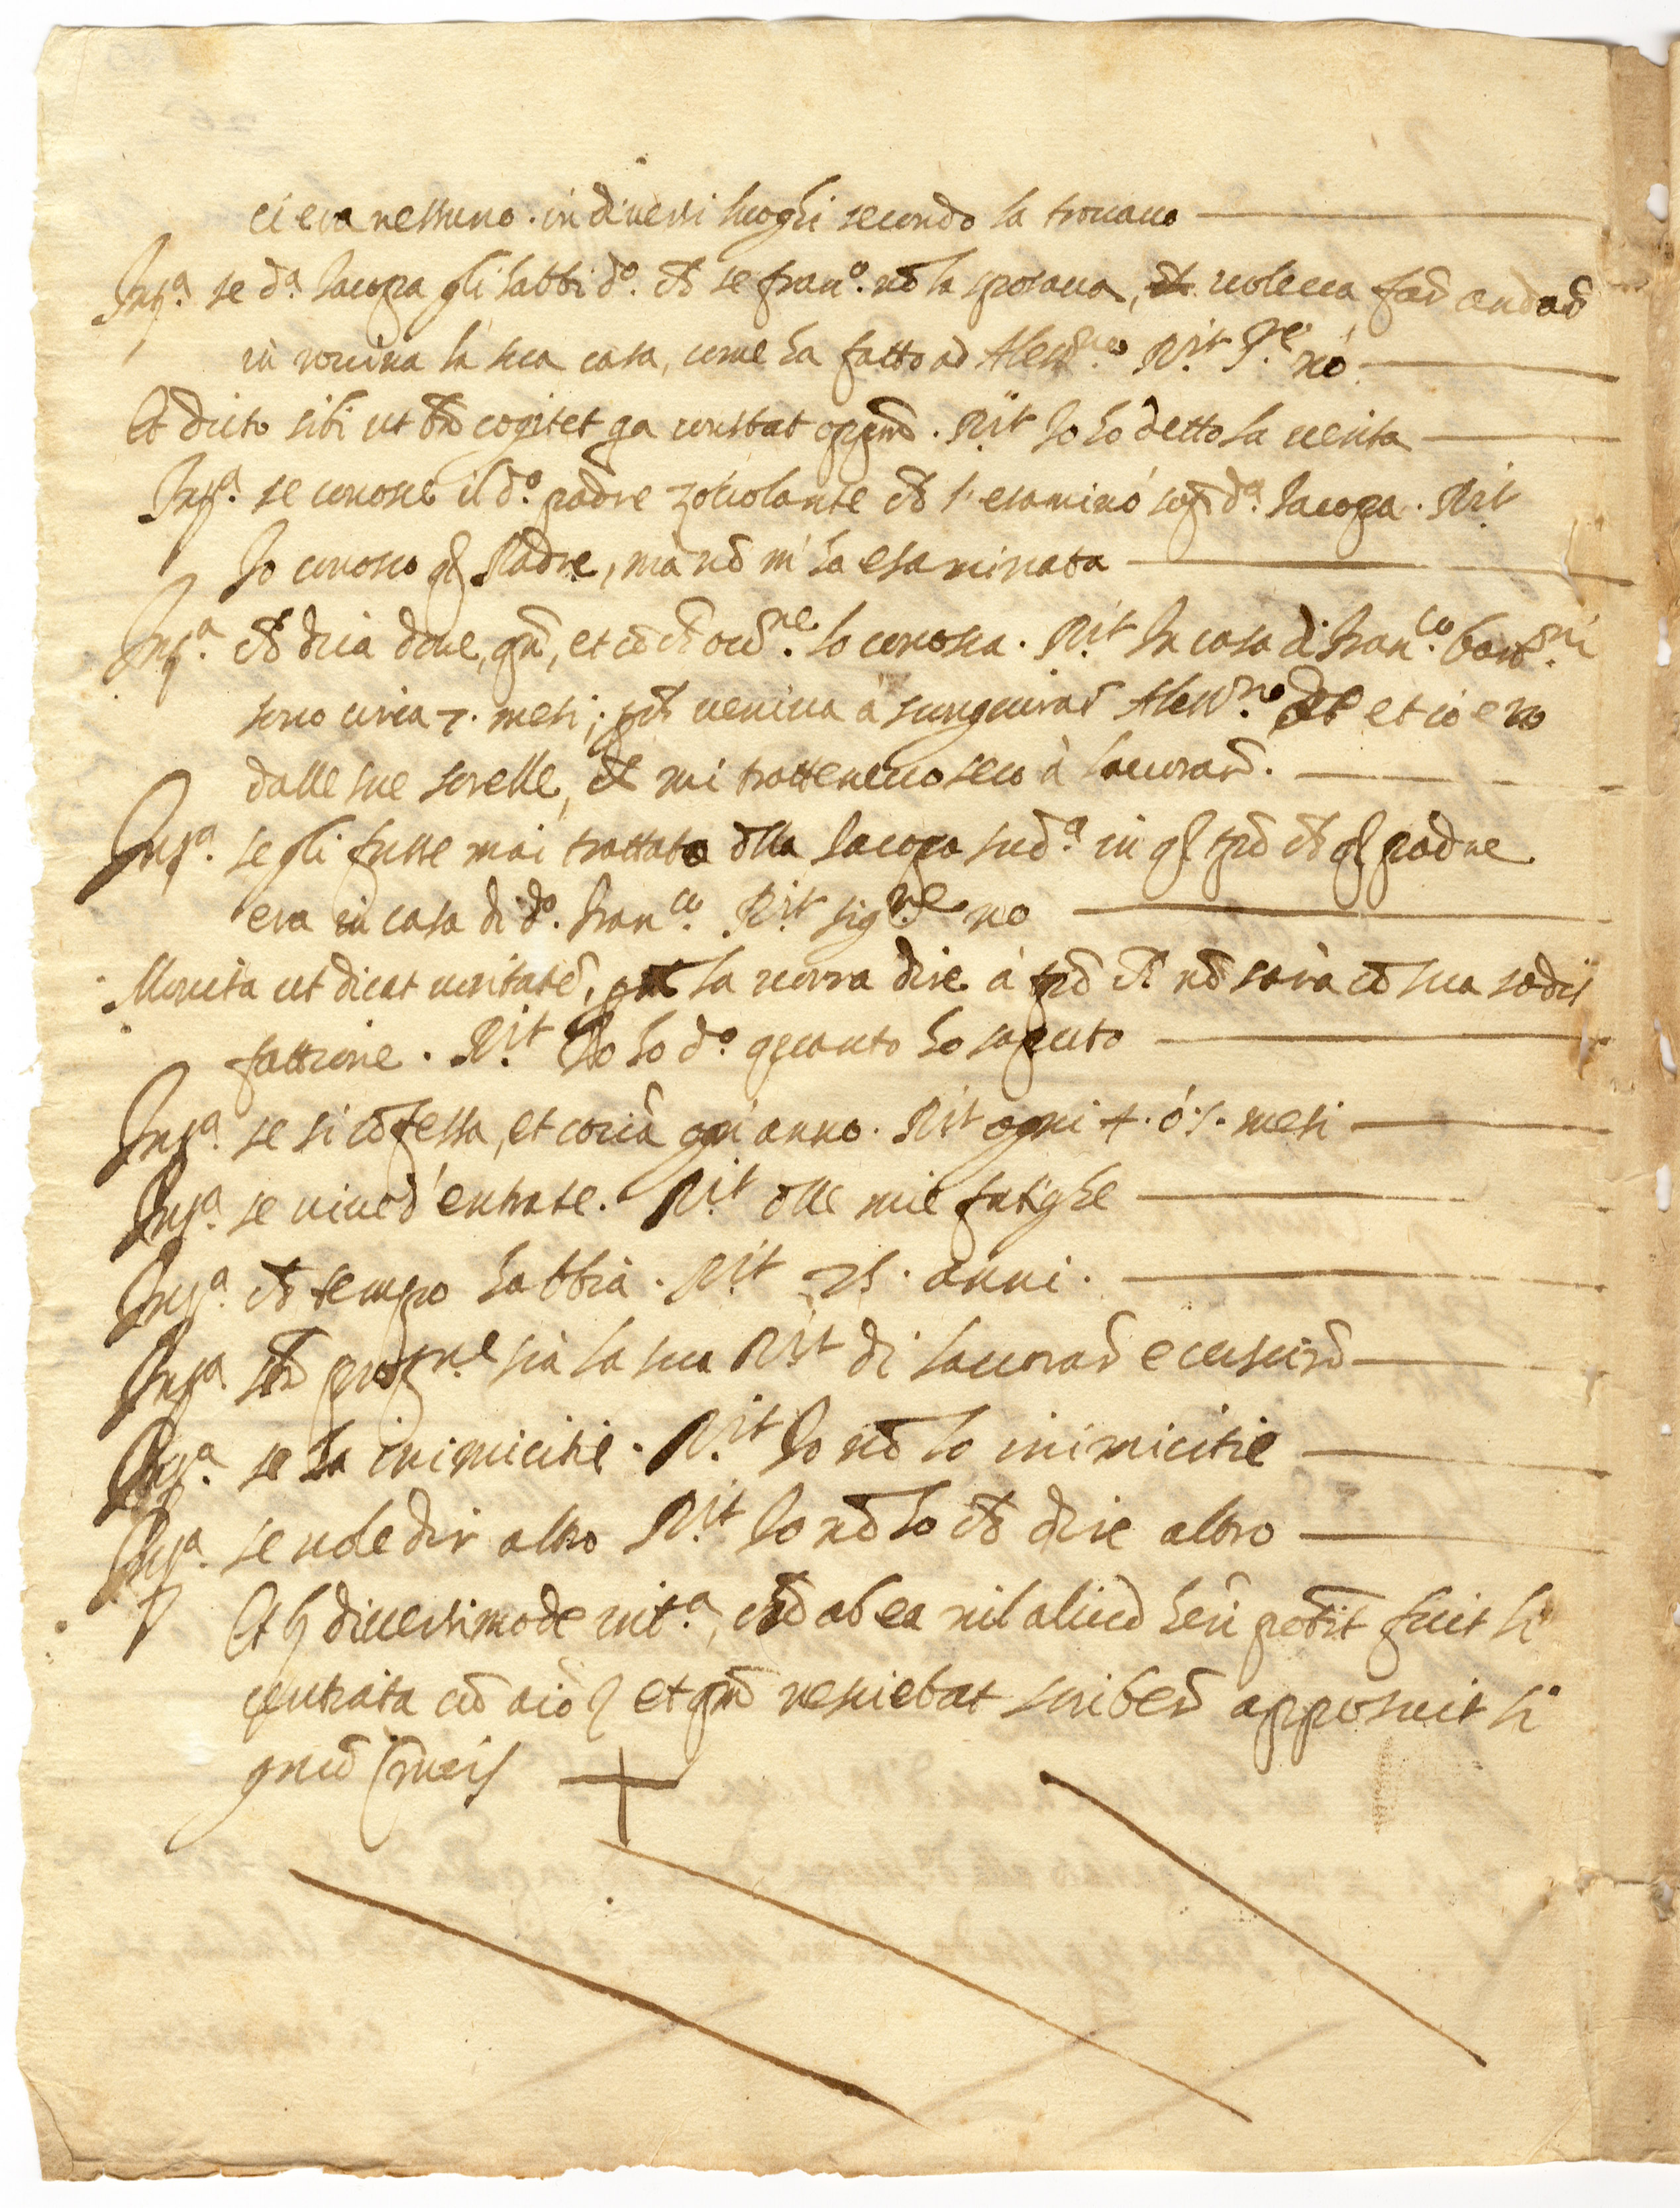 ci era nessuno. in diversi luoghi secondo la trovavo
Int.ᵃ se d.ᵃ Iacopa gli habbi d.º ch̄ se Fran.º nō la sposava, voleva far̄ andar̄
in rovina la sua casa, come ha fatto ad Aless.ʳᵒ R.ⁱᵗ S.ʳᵉ nò
Et dicto sibi ut bn̄ cogitet qa constat oppm̄. R.ⁱᵗ Io ho detto la verita
Int.ᵃ se conosce il d.º padre zoccolante ch̄ l'esaminò sop̄ d.ᵃ Iacopa. R.ⁱᵗ
Io conosco ql̄ Padre, ma nō m'ha esaminata
Int.ᵃ ch̄ dica dove, qn̄, et cō ch̄ occ̄.ⁿᵉ lo conosca. R.ⁱᵗ In casa di Fran.ᶜᵒ
sono circa 7. mesi; ch̄ veniva à scongiurar̄ Aless.ʳᵒ et io ero
dalle sue sorelle, ch̄ mi trattenevo seco à lavorar̄.
Int.ᵃ se gli fusse mai trattato dlla Iacopa sud.ᵃ in ql̄ tpō ch̄ ql̄ padre
era in casa di d.º Fran.ᶜᵒ R.ⁱᵗ sig.ʳᵉ no
Monita ut dicat veritatē, la vorra dire à tpō ch̄ nō sarà cō sua sodis
fattione. R.ⁱᵗ Io ho d.º quanto ho saputo
Int.ᵃ se si cōfessa, et coīca ogni anno. R.ⁱᵗ ogni 4. ó 5. mesi
Int.ᵃ se vive d'entrate. R.ⁱᵗ dlle mie fatighe
Int.ᵃ ch̄ tempo habbia. R.ⁱᵗ 25. anni.
Int.ᵃ ch̄ prof.ⁿᵉ sia la sua R.ⁱᵗ di lavorar̄ e cuscir̄
Int.ᵃ se ha inimicitie. R.ⁱᵗ Io nō ho inimicitie
Int.ᵃ se vole dir altro R.ⁱᵗ Io nō ho ch̄ dire altro
Et diversimode int.ᵃ, cū ab ea nil aliud heri potit fuit li
centiata cū et qm̄ nesciebat scriber̄ apposuit si
gnū Crucis +